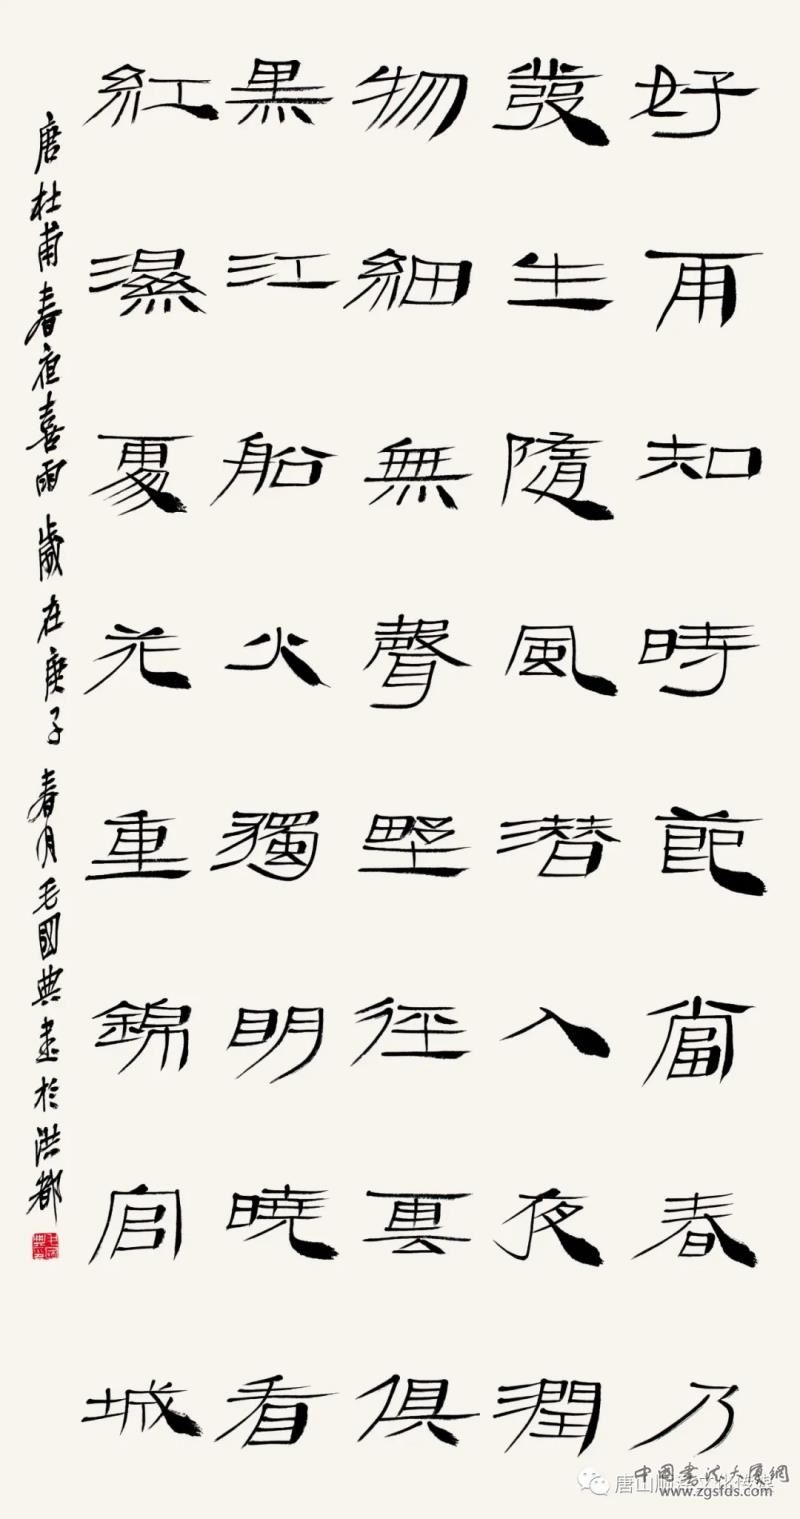 好雨知時節當春乃
發生隨風潜入夜潤
物細無聲野徑雲俱
黑江船火獨明曉看
紅濕處花重錦官城
唐杜甫春夜喜雨歲在庚子春月毛國典書於洪都
中國書法大廈網
www.zgsfds.com
唐山